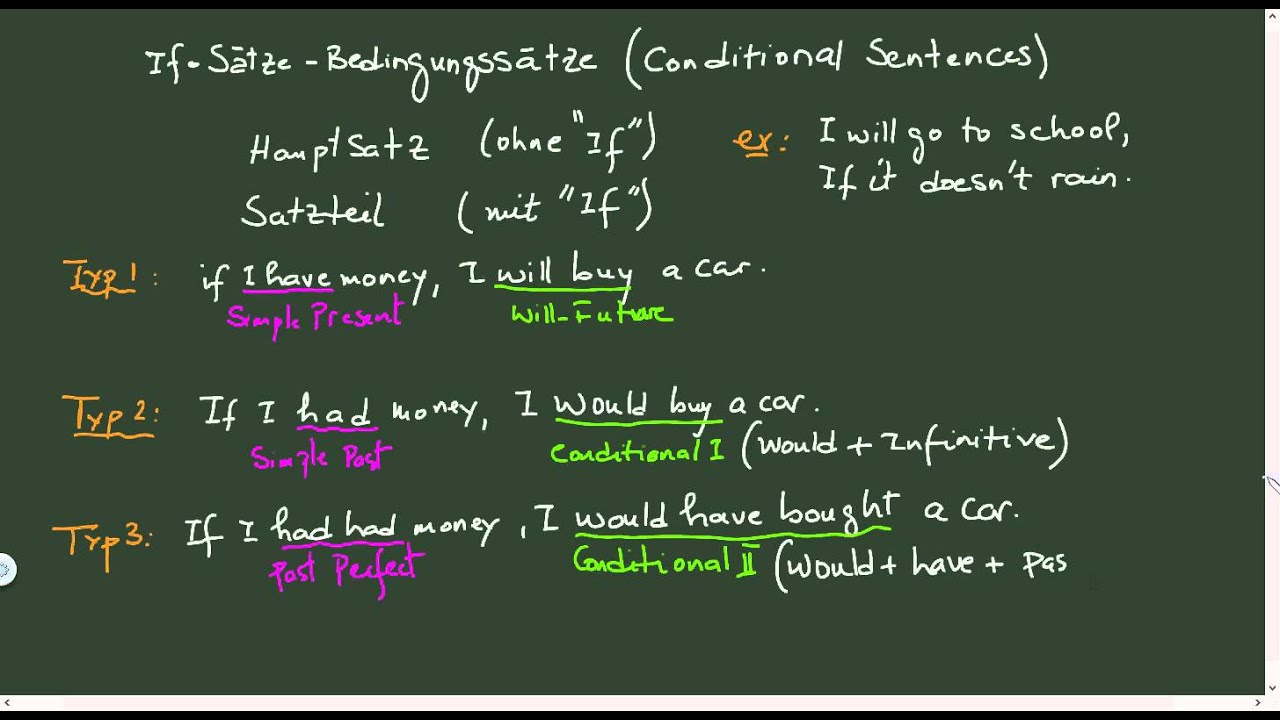 If-Sätze-Bedingungssätze (Conditional Sentences)
Hauptsatz (ohne "If")
ex: I will go to school,
If it doesn't rain.
Satzteil (mit "If")
Typ1: if I have money, I will buy a car.
Simple Present will-Future
Typ2: If I had money, I would buy a car.
Simple Past Conditional I (would + Infinitive)
Typ3: If I had had money, I would have bought a car.
Past Perfect Conditional II (would + have + pas